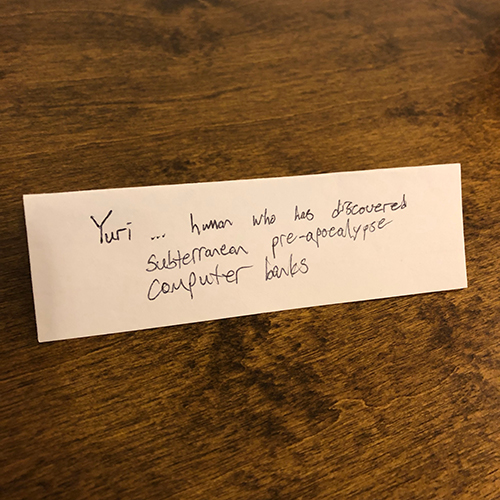 Yuri ... human who has discovered
subterranean pre-apocalypse
computer banks